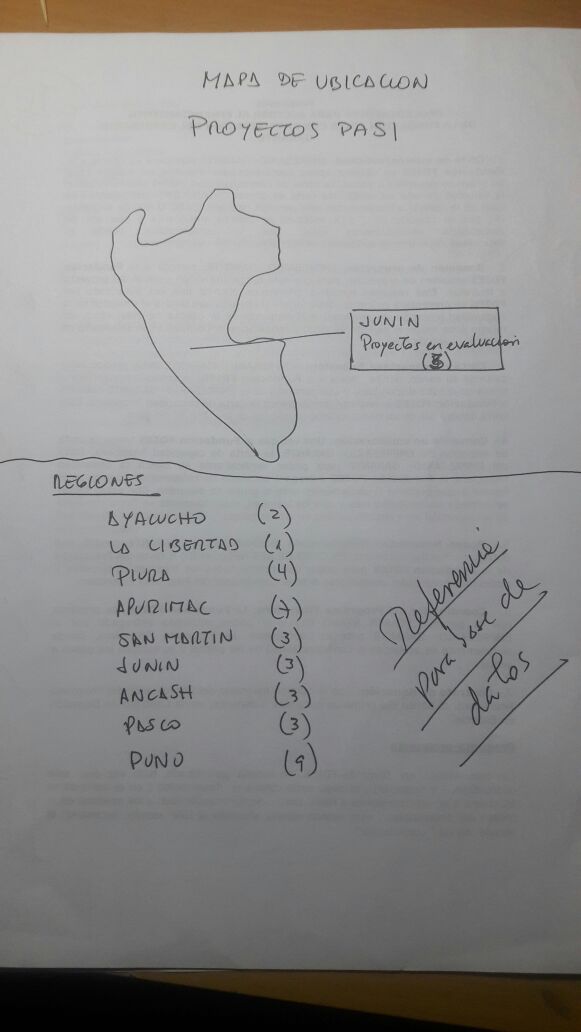 MAPA DE UBICACION
PROYECTOS PASI
JUNIN
Proyectos en evaluacion
(3)
REGIONES
AYACUCHO (2)
LA LIBERTAD (1)
PIURA (4)
APURIMAC (7)
SAN MARTIN (3)
JUNIN (3)
ANCASH (3)
PASCO (3)
PUNO (9)
Referencia
para base de
datos